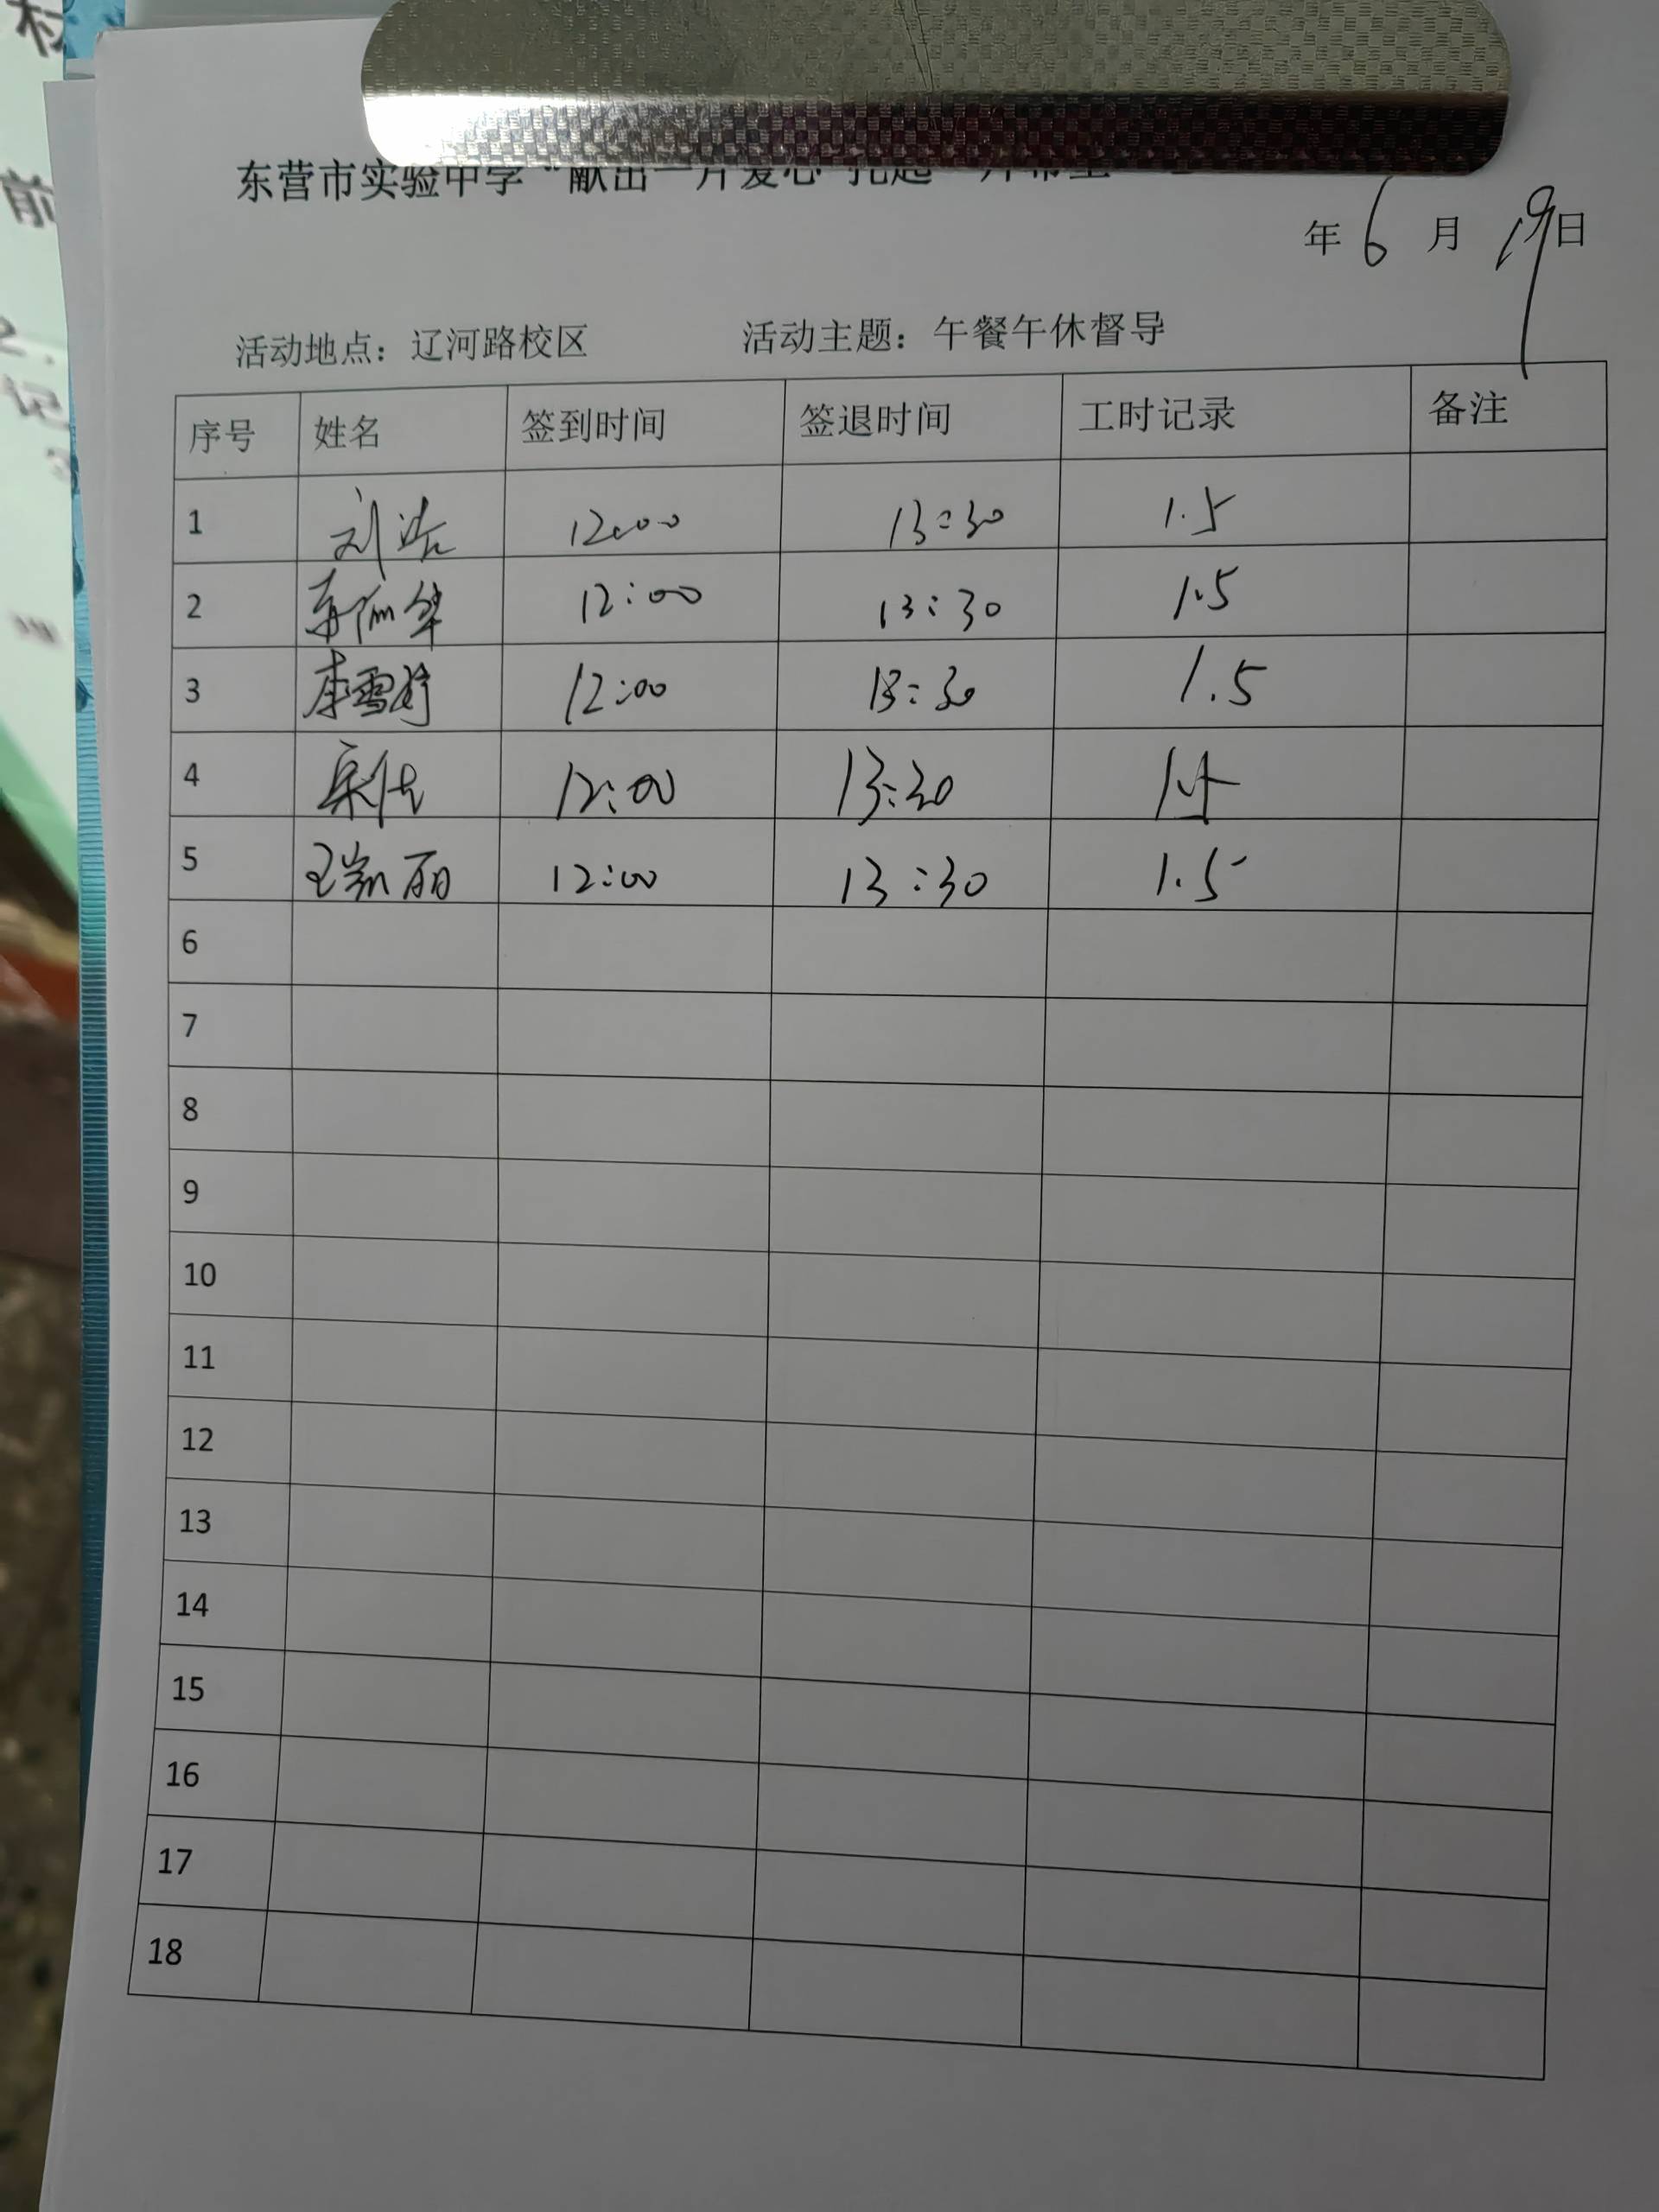 东营市实验中学“献出一片爱心 托起一片希望
年 6 月 19日
活动地点：辽河路校区 活动主题：午餐午休督导
序号 姓名 签到时间 签退时间 工时记录 备注
1 刘浩 12:00 13:30 1.5
2 12:00 13:30 1.5
3 李雪婷 12:00 13:30 1.5
4 宋佳 12:00 13:30 1.5
5 王凯丽 12:00 13:30 1.5
6
7
8
9
10
11
12
13
14
15
16
17
18
前
记